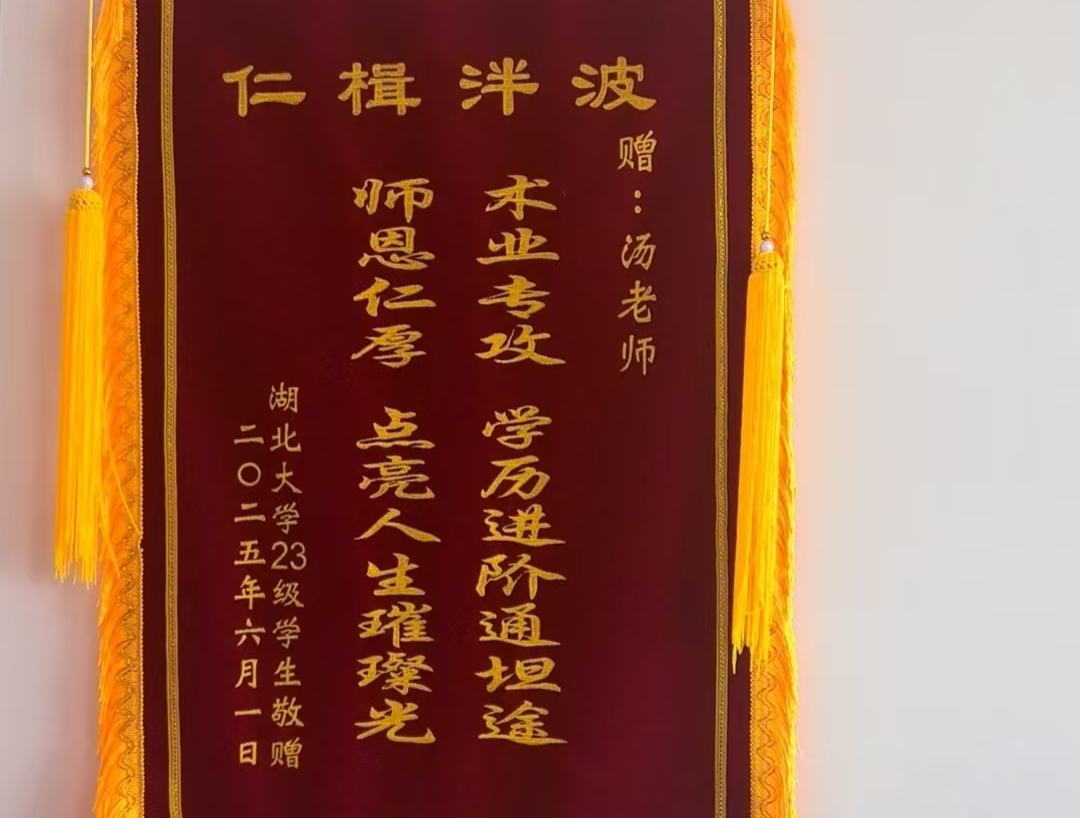 仁楫泮波
赠：汤老师
术业专攻 学历进阶通坦途
师恩仁厚 点亮人生璀璨光
湖北大学23级学生敬赠
二〇二五年六月一日